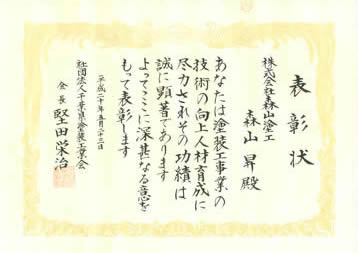 表彰状
株式会社森山塗工
森山昇殿
あなたは塗装工事業の
技術の向上人材育成に
尽力されその功績は
誠に顕著であります
よってここに深甚なる意を
もって表彰します
平成二十年五月二十三日
社団法人千葉県塗装工業会
会長 堅田栄治